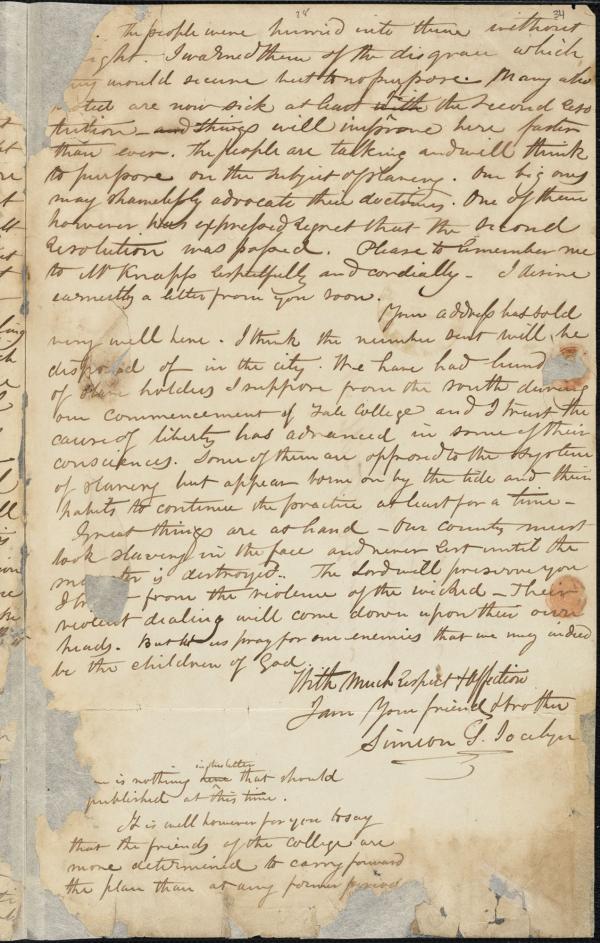 28 34
the people were hurried into them without
I warned them of the disgrace which
they would secure but to no purpose. Many also
are now sick at least with the second Reso
lution - and things will improve here faster
than ever. the people are talking and will think
to purpose on the subject of slavery. Our big ones
may shamefully advocate their doctrines. One of them
however has expressed regret that the second
Resolution was passed. Please to remember me
to Mr Knapp respectfully and cordially - I desire
earnestly a letter from you soon.
Your address has sold
very well here. I think the number sent will be
disposed of in the city. We have had hund
of slave holders I suppose from the south during
our commencement of Yale College and I trust the
cause of liberty has advanced in some of their
consciences. Some of them are opposed to the system
of slavery but appear borne on by the tide and their
habits to continue the practice at least for a time -
Great things are at hand - Our country must
look slavery in the face and never rest until the
is destroyed. The Lord will preserve you
I from the violence of the wicked - Their
violent dealing will come down upon their own
heads. But let us pray for our enemies that we may indeed
be the children of God.
With Much respect & Affection
I am Your friend & brother
Simeon S. Jocelyn
in the letter
is nothing here that should
published at this time.
It is well however for you to say
that the friends of the college are
more determined to carry forward
the plan than at any former period